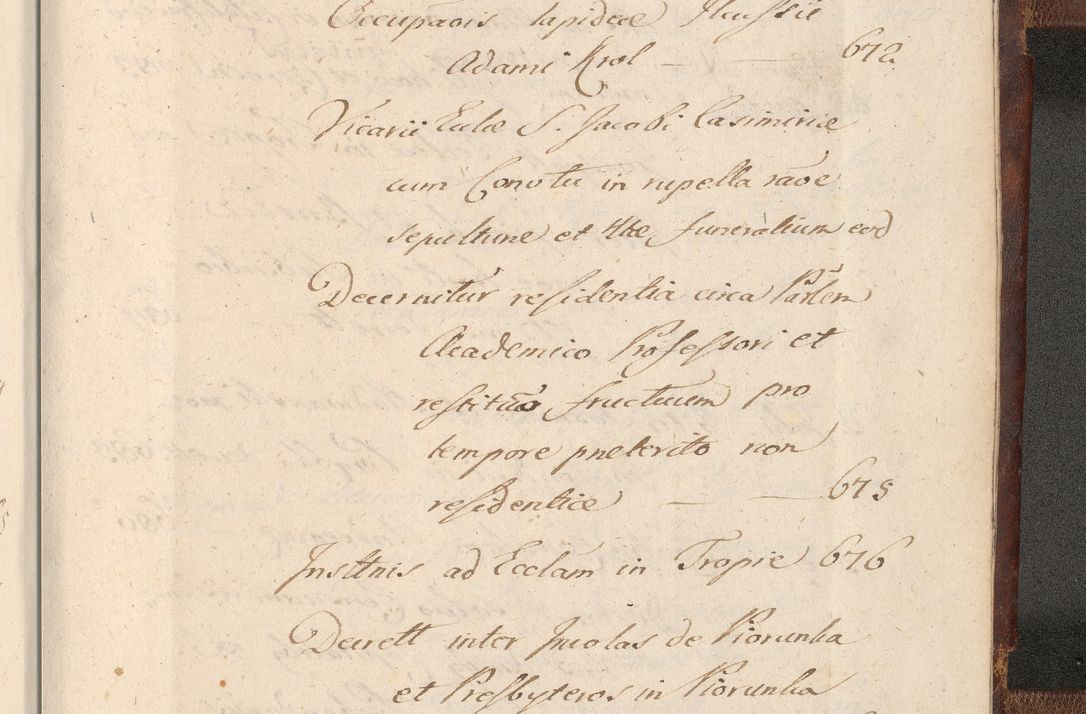 Occupaois lapideae
Adami Krol — — 672
Vicarii Eccle S. Jacobi Casimiriae
cum Conotu in rupella raoe
sepulturae et funeralium eod
Decernitur residentia circa Parlem
Academico Professori et
restituo fructuum pro
tempore praeterito non
residentiae — — 675
Insttnis ad Ecclam in Tropie 676
Decrett inter Incolas de Piorunka
et Presbyteros in Piorunka